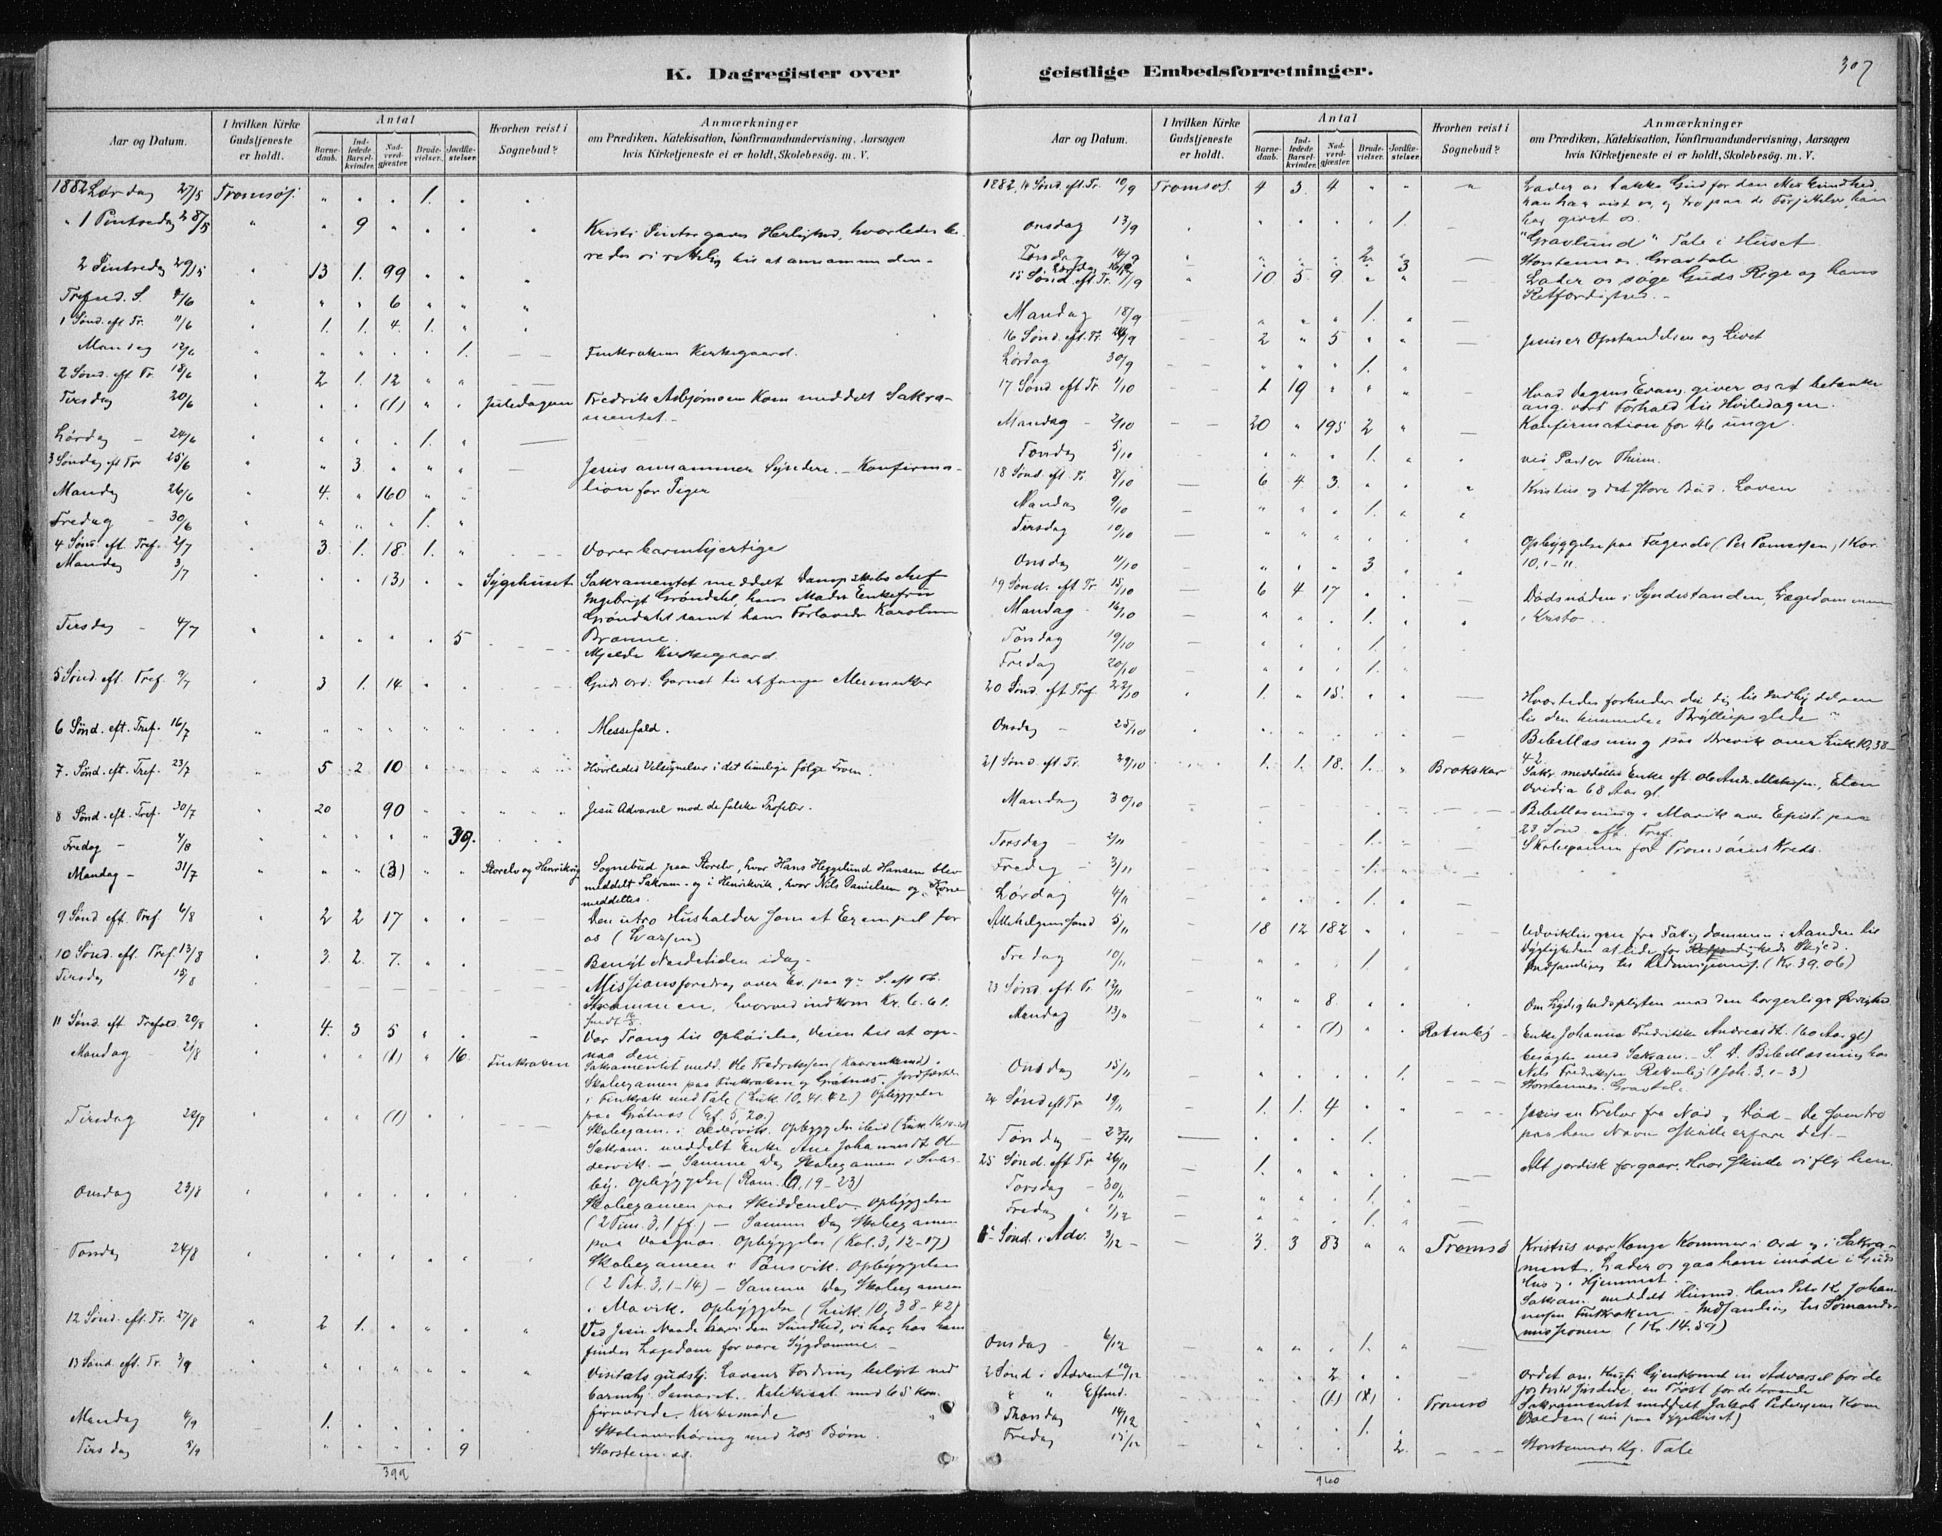 K. Dagregister over geistlige Embedsforretninger.
307
Aar og Datum.
I hvilken Kirke Gudstjeneste er holdt.
Antal
Barnedaab.
Indledede Barselkvinder.
Nadverdgjester.
Brudevielser.
Jordfæstelser.
Hvorhen reist i Sognebud?
Anmærkninger
om Prædiken, Katekisation, Konfirmandundervisning, Aarsagen
hvis Kirketjeneste ei er holdt, Skolebesøg. m. V.
1882 Lørdag 27/5 Tromsø " " " 1. "
" 1 Pintsedag 28/5 " " 9 " " "
2 Pintsedag 29/5 " 13 1. 99 " "
Kristi
Herlighed, hvorledes be-
redes vi rettelig til at annamme den.
Trefud. S. 4/6 " " " 6 " "
1 Sønd. eft Tr. 11/6 " 1. 1. 4. 1. "
Mandag 12/6 " " " " " 1.
Finkrokens Kirkegaard.
2 Sønd. eft Tr. 18/6 " 2 1. 12 " "
Tirsdag 20/6 " " " (1) " " Juledagen
Fredrik Asbjørnsen Kom meddelt Sakra-
mentet.
Lørdag - 24/6 " " " " 1. "
3 Søndag eft Tr 25/6 " " 3 " " "
Jesus annammer Syndere. - Konfirma-
tion for Piger
Mandag 26/6 " 4. " 160 " "
Fredag - 30/6 " " " " 1. "
4 Sønd. eft. Tref. 2/7 " 3. 1. 18. 1. "
Vorer barmhjertige
Mandag 3/7 " " " (3) " " Sygehuset
Sakramentet meddelt Dampskibs
Ingebrigt Grøndahl, hans Moder Enkefru
Grøndahl samt hans Forlovede Karoline
Brænne.
Tirsdag - 4/7 " " " " " 5
Mjelde Kirkegaard.
5 Sønd. eft. Tref. 9/7 " 3 1. 14. " "
Guds ord: Garnet til at fange Mennesker
6 Sønd. eft. Tref. 16/7 " " " " " "
Messefald.
7. Sønd. eft. Tref. 23/7 " 5 2 10 " "
Hvorledes Velsignelser i det timelige følge Troen.
8 Sønd. eft. Tref. 30/7 " 20 90 " "
Jesu Advarsel mod de falske Profeter.
Fredag - 4/8 " " " " " 39.
Mandag - 31/7 " " " (3) " " Storelv og Henrikvig
Sognebud paa Storelv, hvor Hans Heggelund Hansen blev
meddelt Sakram. og i Henrikvik, hvor Nils Danielsen og Kone
meddeltes.
9 Sønd eft. Tref 6/8 " 2 2 17 " "
Den utro Husholder som et Exempel for
os (Larsen)
10 Sønd. eft. Tref. 13/8 " 3. 2. 7. " "
Benyt Naadetiden idag.
Tirsdag 15/8
Missionsforedrag over Ev. paa 9de S. eft Tr.
, hvorved indkom Kr. 6.61.
11 Sønd. eft Trefold. 20/8 " 4. 3 5 " "
Vor Trang til Ophøielse, Veien til at op-
naa den
Mandag - 21/8 " " (1) " 16. Finkroken
Sakramentet medd. Ole Fredriksen
Skoleexamen paa Finkroken og Gråtnes. Jordfæstelse
i Finkrok med Tale (Luk. 10, 41.42.) Opbyggelse
paa Gråtnes (Ef. 5, 20.)
Tirsdag 22/8 " " " (1) " "
Skoleexam. i Oldervik. Opbyggelse ibid
Sakram. meddelt Enke Ane Johannesdt Ol-
dervik. - Samme Dag Skoleexamen i Svars-
by. Opbyggelse (Rom. 6, 19-23)
Onsdag 23/8 " " " " " "
Skoleexamen paa Skiddenelv. Opbyggelse
(2 Tim. 3, 1 ff) - Samme Dag Skoleexamen
paa Vaagnes. Opbyggelse (Kol. 3, 12-17)
Torsdag 24/8 " " " " " "
Skoleexamen i Tønsvik. Opbyggelse
(2 Pet. 3, 1-14) - Samme Dag Skoleexamen
i Movik. Opbyggelse (Luk. 10, 38-42)
12 Sønd. eft. Tr. 27/8 " 2 1. " " "
Ved Jesu Naade have vi den Sundhed, vi har, hos ham
findes Lægedom for vore Sygdomme.
13 Sønd. eft. Tr. 3/9 " " " " " "
Visitatsgudstj. Lovens Fordring belyst ved
barmhj. Samarit. Katekisat. med 65 kon-
firmerede. Kirkemøde
Mandag 4/9 1.
Skoleoverhøring med 205 Børn.
Tirsdag 5/9 9
Storstennes.
399
Aar og Datum.
I hvilken Kirke Gudstjeneste er holdt.
Antal
Barnedaab.
Indledede Barselkvinder.
Nadverdgjester.
Brudevielser.
Jordfæstelser.
Hvorhen reist i Sognebud?
Anmærkninger
om Prædiken, Katekisation, Konfirmandundervisning, Aarsagen
hvis Kirketjeneste ei er holdt, Skolebesøg. m. V.
1882. 14 Sønd. eft. Tr. 10/9 Tromsø. 4 3. 4 " "
Lader os takke Gud for den Miskundhed,
han har vist os, og tro paa de Forjættelser, han
har givet os.
Onsdag 13/9 " " " " " 1.
"Gravlund" Tale i Huset
Torsdag 14/9 " " " " 2 "
Lørdag 16/9 3
Storstennes. Gravtale
15 Sønd. eft. Tr. 17/9 " 10 5 9 " "
Lader os søge Guds Rige og hans
Retfærdighed. -
Mandag 18/9 - " " " 1. "
16 Sønd. eft. Tr. 24/9 - 2 " 5 " "
Jesus er Opstandelsen og Livet
Lørdag 30/9 - " " " 1. "
17 Sønd. eft Tr. 1/10 - 1 19 " " "
Hvad Dagens Evang. giver os at betænke
ang. vort Forhold til Hviledagen.
Mandag - 2/10 - 20 " 195 2 "
Konfirmation for 46 unge
Torsdag 5/10 " " " 1. "
ved Pastor
18 Sønd. eft. Tr. 8/10 - 6 4 3. " "
Kristus og det store Bud i Loven
Mandag 9/10 - " " " 1. "
Tirsdag 10/10 - " " " " "
Opbyggelse paa 1 Kor.
10, 1-11.
Onsdag 11/10 " " " 3 "
19 Sønd. eft. Tr. 15/10 - 6 4 17 " "
Dødsnøden i Syndestanden, Lægedommen
i Kristo.
Mandag - 16/10 - " " " 1. "
Torsdag 19/10 " " " 1. "
Fredag 20/10 - " " " 1. "
20 Sønd. eft Tref. 22/10 " 1. " 15. " "
Hvorledes forholder du dig til Indbydelsen
til den himmelske Bryllupsglæde
Onsdag - 25/10
Bibellæsning paa Brevik over Luk. 10, 38-
42
21 Sønd. eft Tr. 29/10 1. 1. 18. 1. " Brokskar
Sakr. meddeltes Enke eft. Ole And. , Elen
Ovidia 68 Aar gl.
Mandag 30/10
Bibellæsning i Movik over Epist. paa
23 Sønd. eft. Tref.
Torsdag - 2/11 - " " " 1. "
Skoleexamen for Tromsøsund Kreds.
Fredag - 3/11 - " " " 1. "
Lørdag 4/11 - " " " 1. "
Allehelgens sond 5/11 - 18 12 182 " "
Udviklingen fra Fattigdommen i Aanden til
Dygtigheden at lide for Retfærdigheds Skyld.
Indsamling til (Kr. 39.06)
Fredag 10/11 - " " " 1. "
23 Sønd. eft. Tr. 12/11 - " " 8. " "
Om Lydighedspligten mod den borgerlige Øvrighed
Mandag 13/11 " " (1) " " Rakenlej
Enke Johanna Fredrikke Andreasdt. (60 Aar gl)
besøgtes med Sakram. - S. D. Bibellæsning hos
Nils Fredriksen (1 Joh. 3, 1-3)
Onsdag 15/11 1.
Storstennes. Gravtale
24 Sønd eft Tr. 19/11 - 1. 1. 4 " "
Jesus en Frelser fra Nød og Død - De som tro
paa hans Navn skulle erfare det. -
Torsdag - 23/11 - " " " 1. "
25 Sønd. eft Tr. 26/11 - 1. " " " "
Alt jordisk forgaar. Hvor skulle vi fly hen
Torsdag - 30/11 - " " " 1. "
Fredag 1/12 - " " " 1. "
1ste Sønd. i Adv. 3/12 - 3. 3 83 " " Tromsø
Kristus vor Konge kommer i Ord og i Sakra-
ment. Lader os gaa ham imøde i Guds
Hus og i Hjemmet.
Sakram. meddelt Husmd. Hans Peter Johan-
nesen Finkroken - Indsamling til Sømands-
missionen (Kr. 14.59)
Onsdag - 6/12 - " " " 1. "
2 Sønd. i Advent 10/12 - " " 2 " "
Ordet om Kristi Gjenkomst en Advarsel for de
jordisksindede, en Trøst for de troende
" " Efterm. (1) (2) Tromsø
Sakramentet meddelt Jakob Pedersen
(nu paa Sygehuset)
Thorsdag 14/12 1.
Fredag 15/12 2.
Storstennes Kg. Tale
960